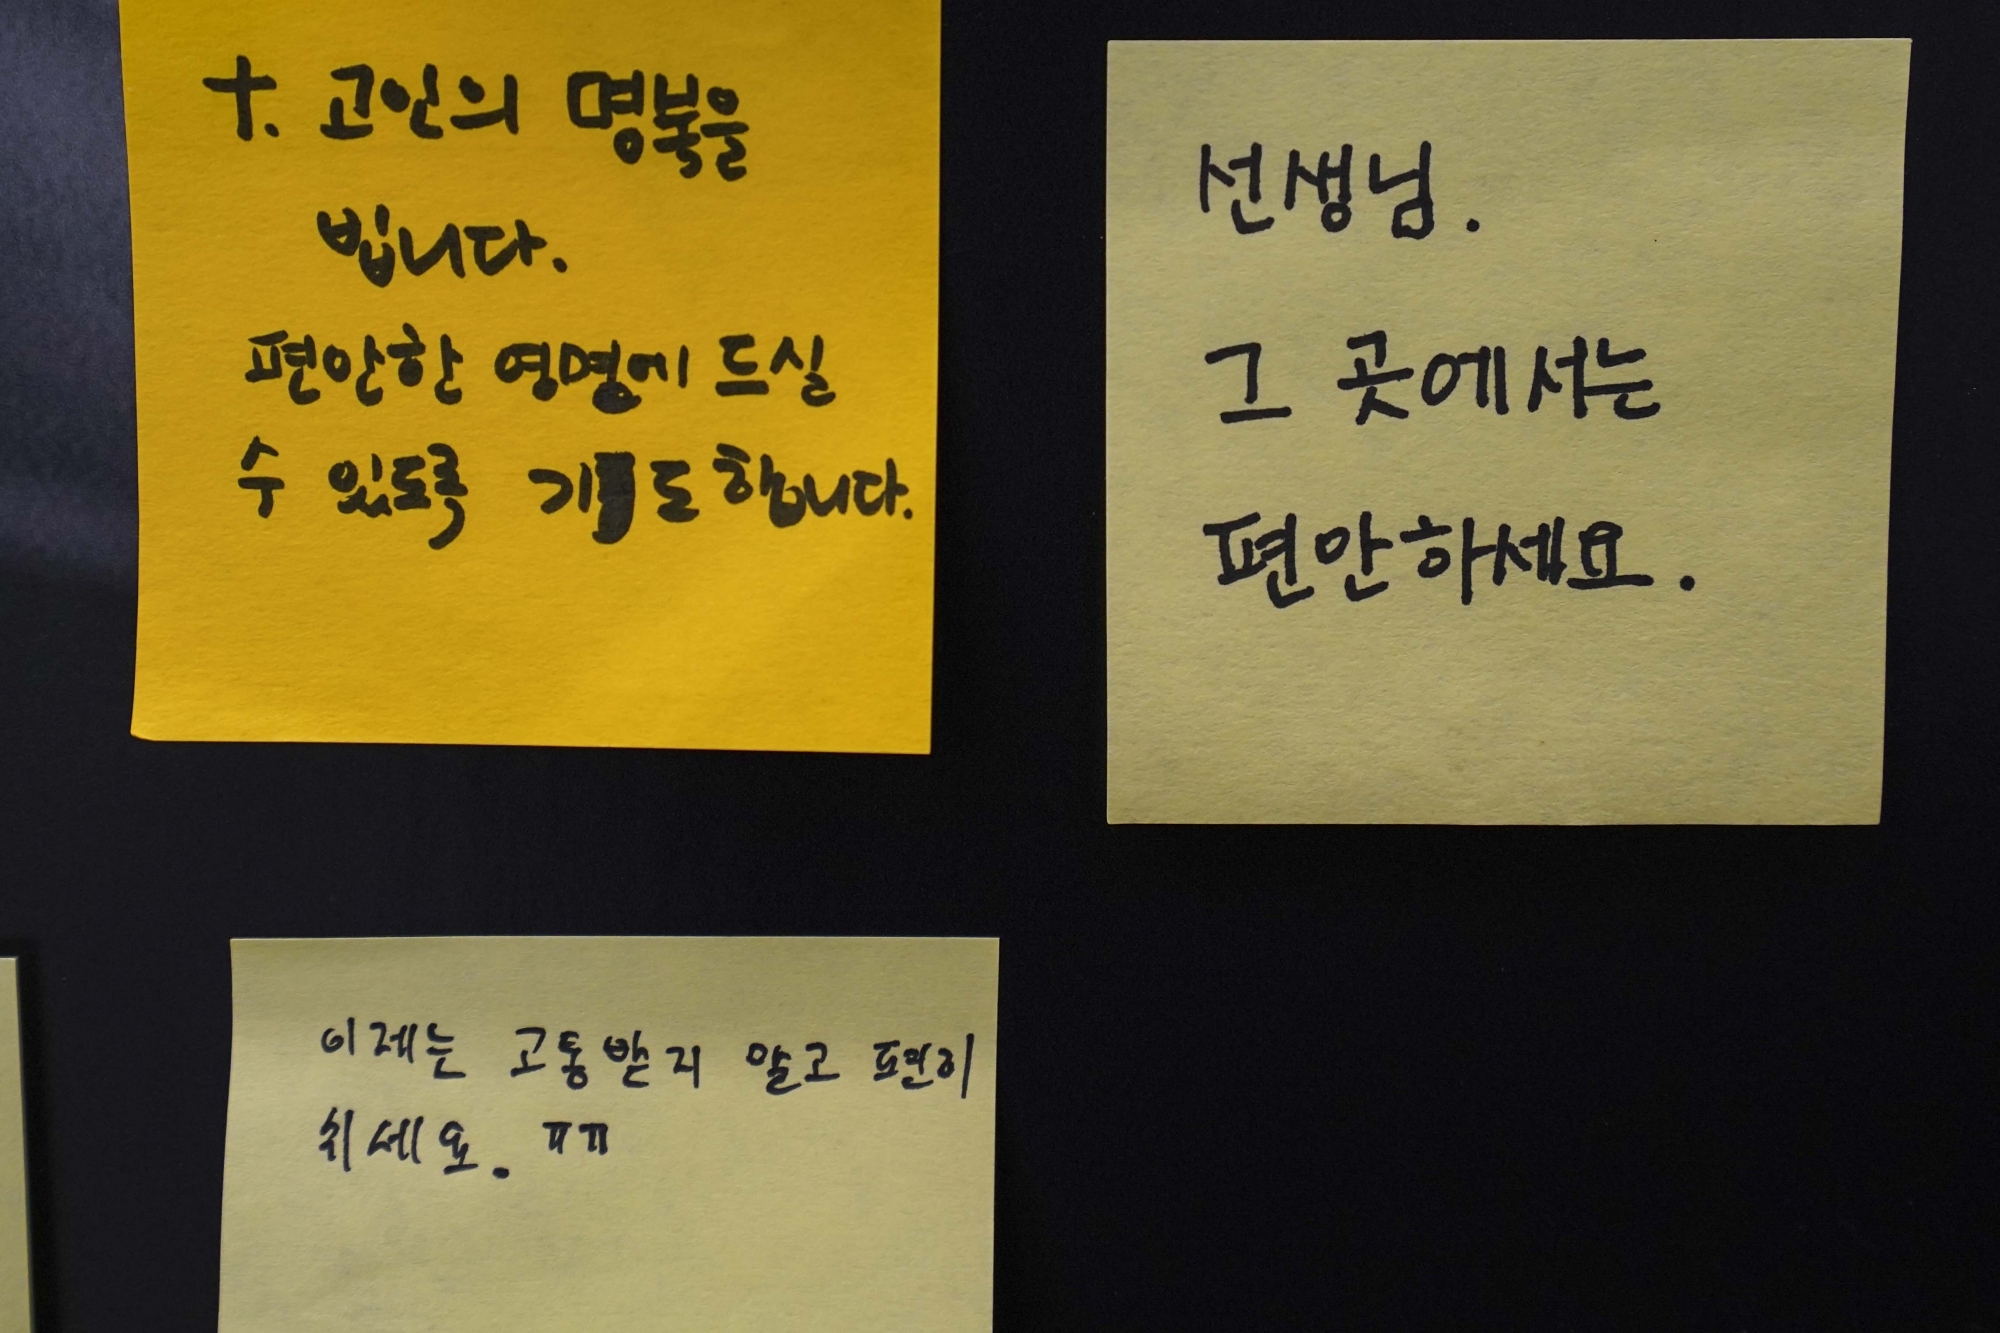 †. 고인의 명복을
빕니다.
편안한 영면에 드실
수 있도록 기도합니다.
선생님.
그 곳에서는
편안하세요.
이제는 고통받지 말고 편히
쉬세요. ㅠㅠ